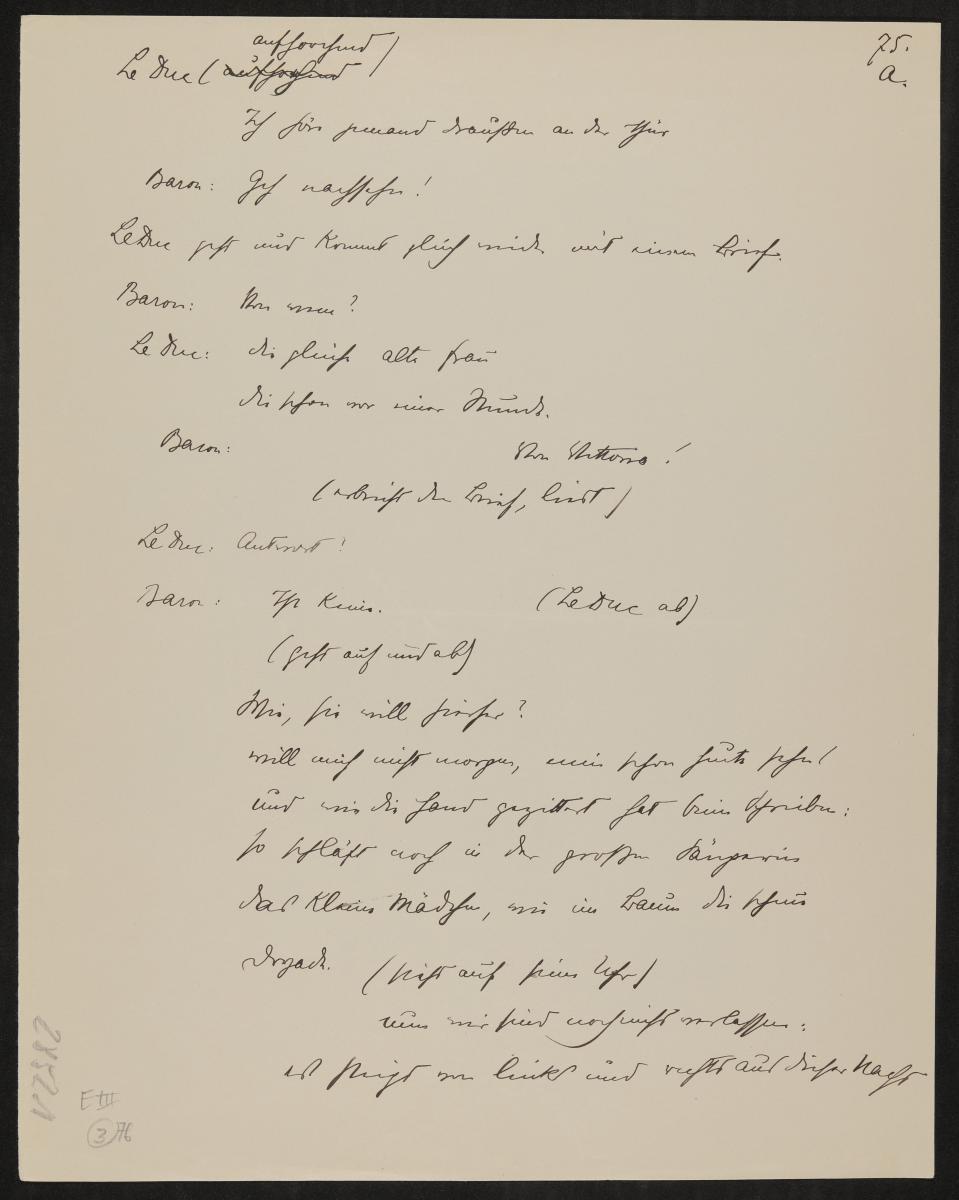 75.
a.
aufhorchend)
Le Duc (aufhorchend
Ich höre jemand draußen an der Thür
Baron: Geh nachsehen!
Le Duc geht und kommt gleich wieder mit einem Brief.
Baron: Von wem?
Le Duc: die gleiche alte Frau
die schon vor einer Stunde.
Baron: Von Vittoria!
(erbricht den Brief, liest)
Le Duc: Antwort?
Baron: Ist keine. (Le Duc ab)
(geht auf und ab)
Wie, sie will hierher?
will mich nicht morgen, nein schon heute sehen!
und wie die Hand gezittert hat beim Schreiben:
so schläft noch in der großen Sängerin
das kleine Mädchen, wie im Baum die scheue
Dryade. (sieht auf seine Uhr)
nun wir sind noch nicht verlassen:
es steigt von links und rechts aus dieser Nacht
E III
3 76